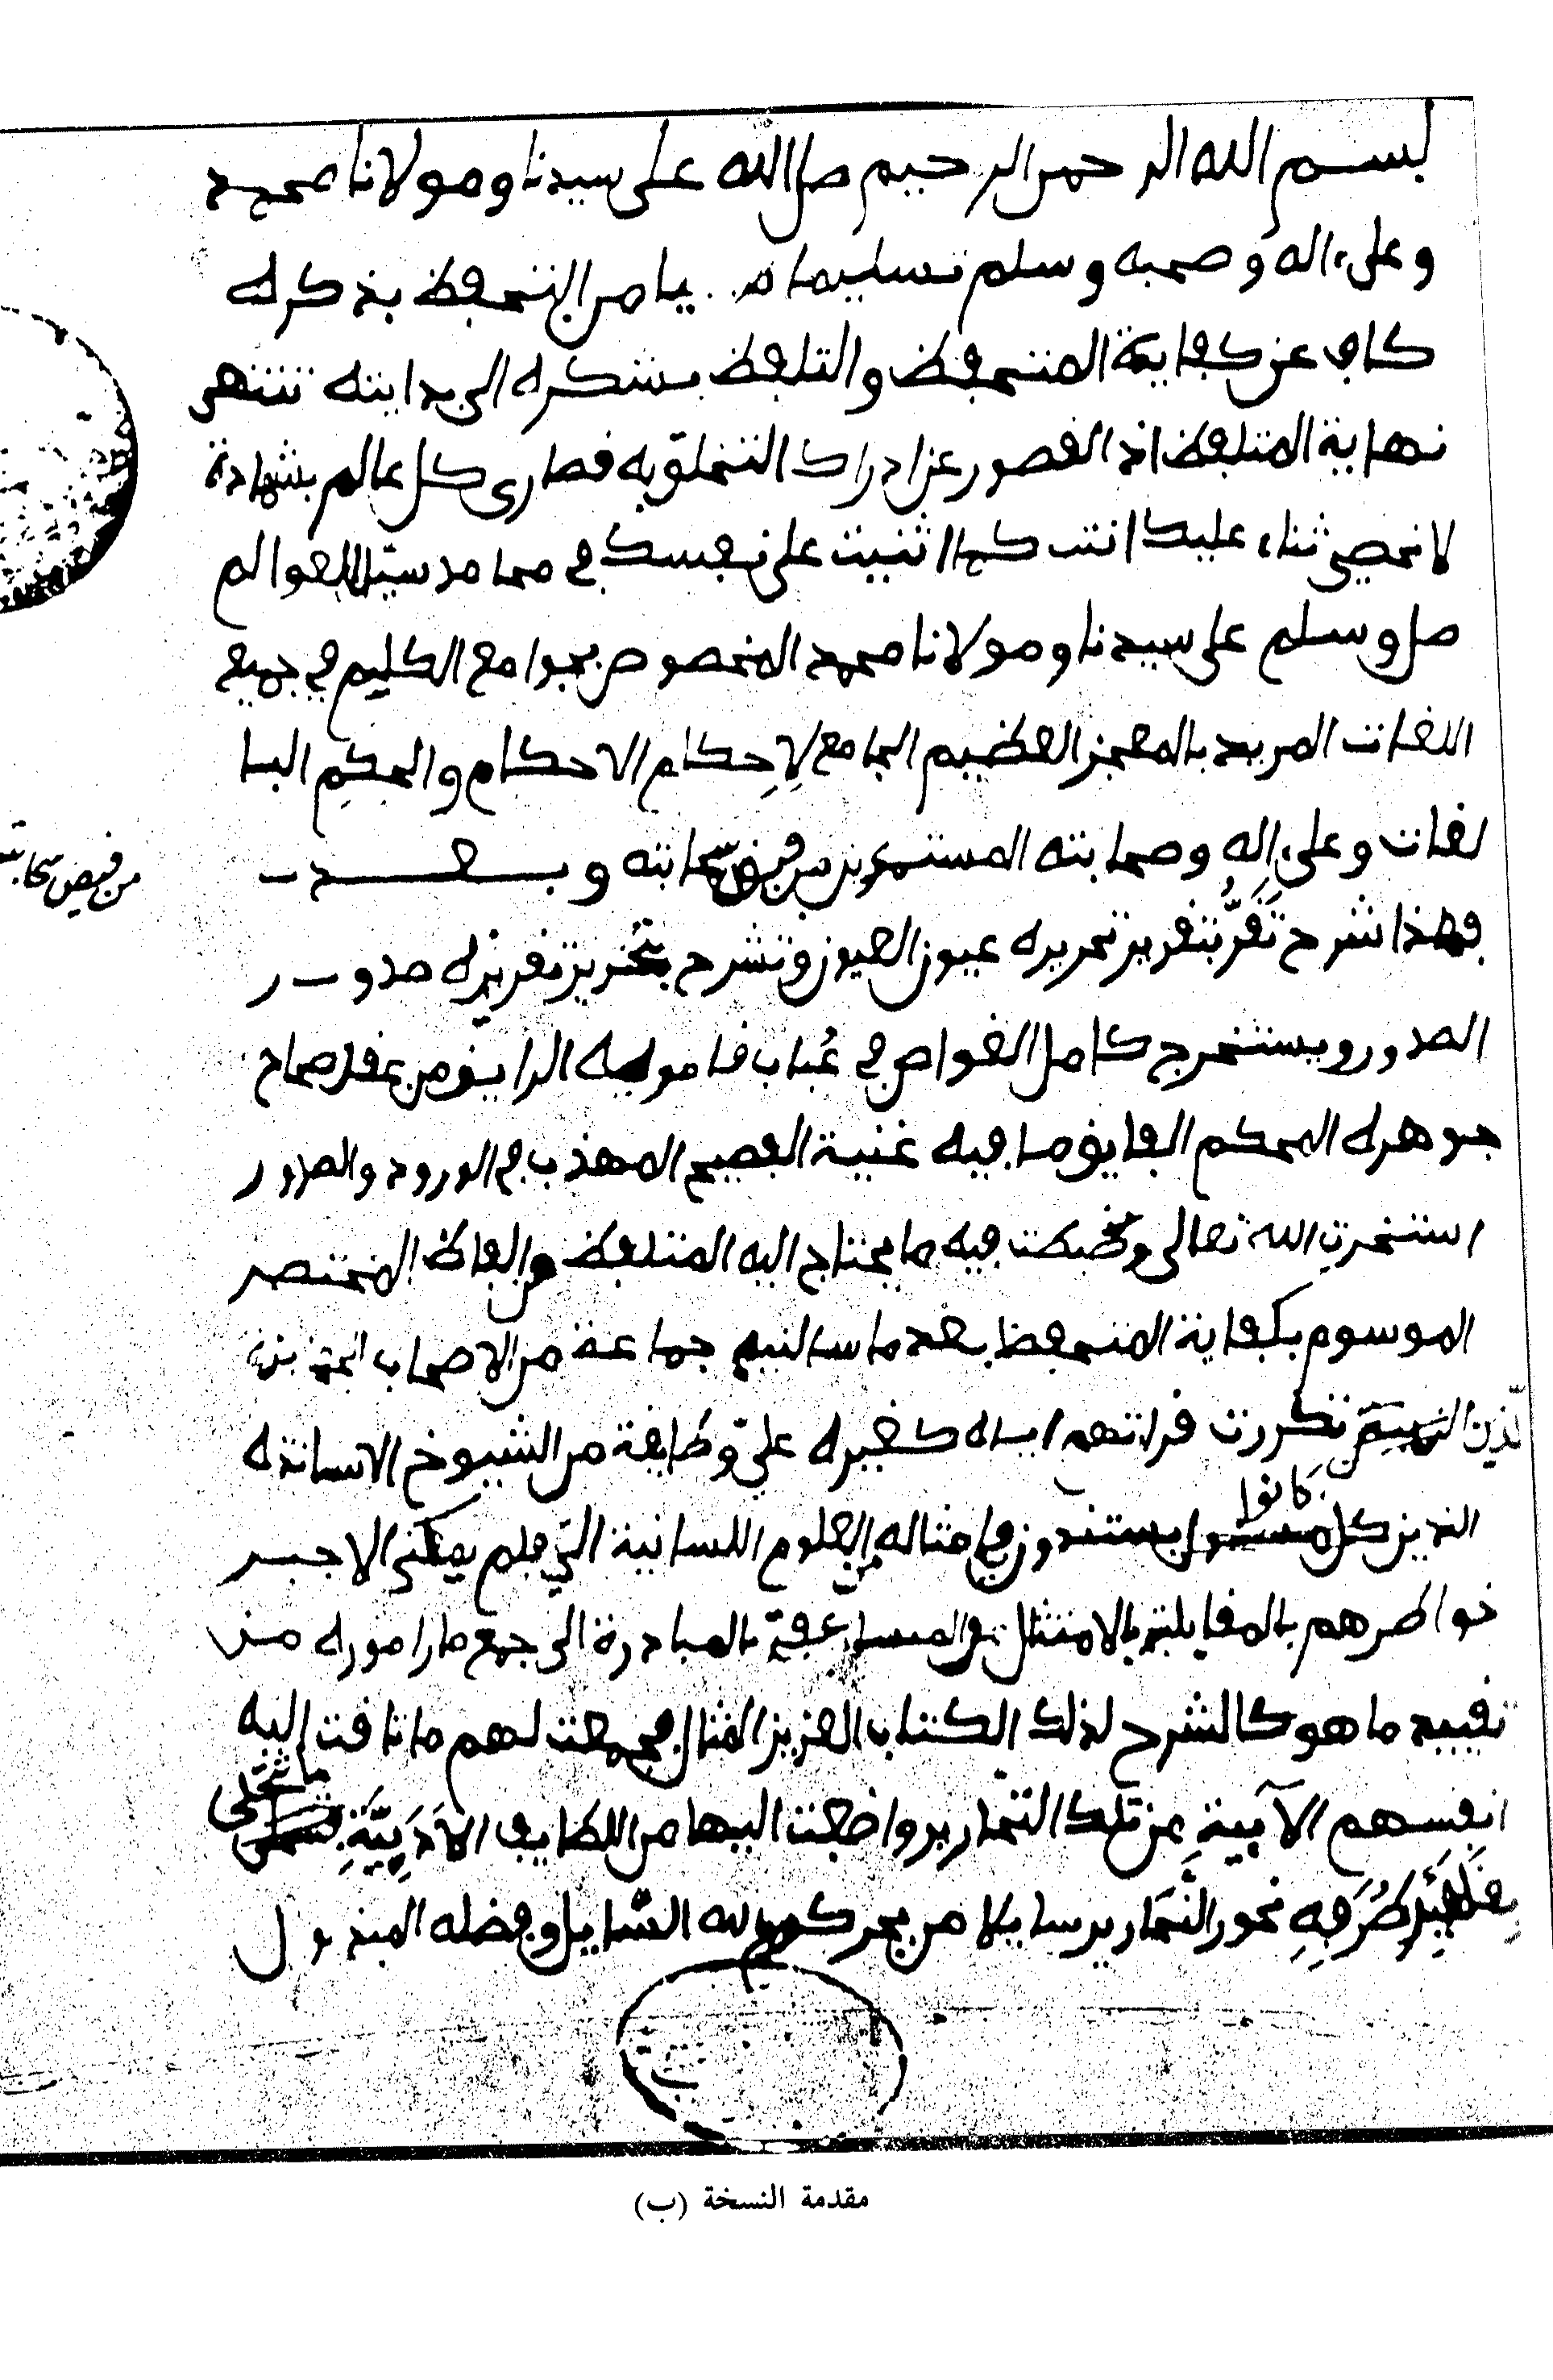 بسم الله الرحمن الرحيم صلى الله على سيدنا ومولانا محمد
وعلى ءاله وصحبه وسلم تسليما يا من التحفظ بذكره
كاف عن كفاية المتحفظ والتلفظ بشكره الى بدايته تنتهي
نهاية المتلفظ اذ القصور عن ادراك التخلق به قصارى كل عالم بشهادة
لا نحصي ثناء عليك انت كما اثنيت على نفسك في محامد سيد العوالم
صل وسلم على سيدنا ومولانا محمد المخصوص بجوامع الكليم في جميع
اللغات المريد بالمعجز العظيم الجامع لإحكام الاحكام والحكم البا
لغات وعلى ءاله وصحابته المستمدين من فيض سحابته وبعد
من فيض سحابته
فهذا شرح تقر بتقرير تحريره عيون العيون وتشرح بتحرير تقريره صدور
الصدور ويستخرج كامل الغواص في عباب قاموسه الرايق من عقد صحاح
جوهره المحكم الفايق ما فيه غنية الفصيح المهذب في الورود والصدور
استخرت الله تعالى وضبطت فيه ما يحتاج اليه المتلفظ من الفاظ المختصر
الموسوم بكفاية المتحفظ بعد ما سالنيه جماعة من الاصحاب
الذين تكررت قراءتهم اياه كغيره علي وطايفة من الشيوخ الاساتذه
الذين كانوا يستندون في امثاله من العلوم اللسانية الي فلم يمكني الا جبر
خواطرهم بالمقابلة بالامتثال والمساعفة بالمبادرة الى جمع ما راموه له من
تقييد ما هو كالشرح لذلك الكتاب العزيز المثال فجمعت لهم ما تاقت اليه
انفسهم الآبية عن تلك التحارير واضفت اليها من اللطايف الأدبية ما تتحلى
بقلايد طرفه نحور النحارير سايلا من بحر كرم الله السايل وفضله المبذول
مقدمة النسخة (ب)